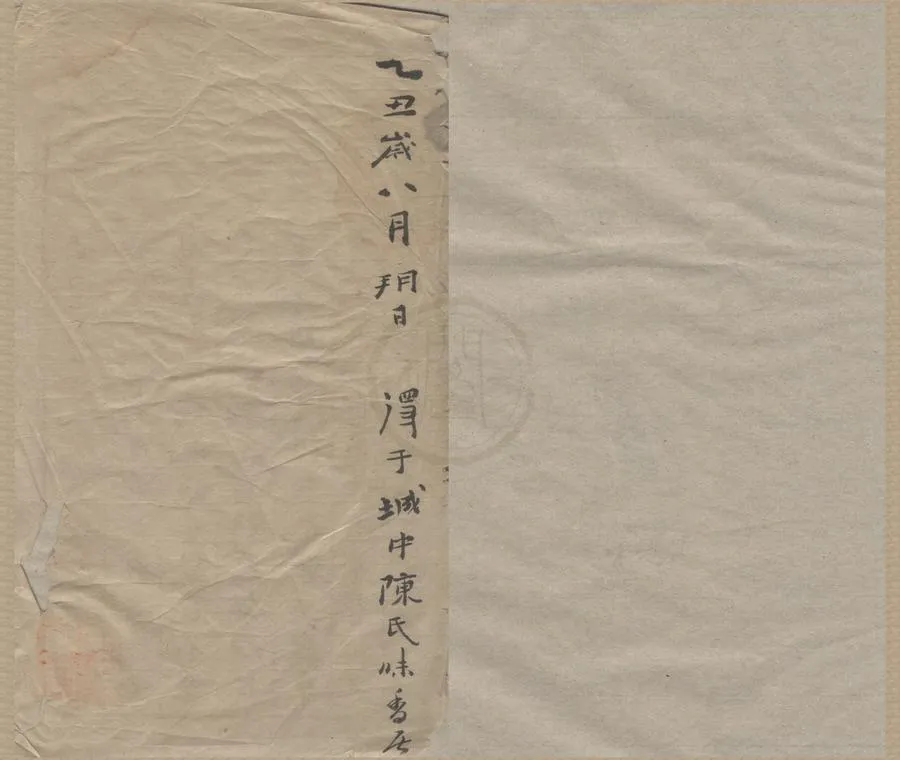 乙丑歲八月朔日 得于城中陳氏味香居